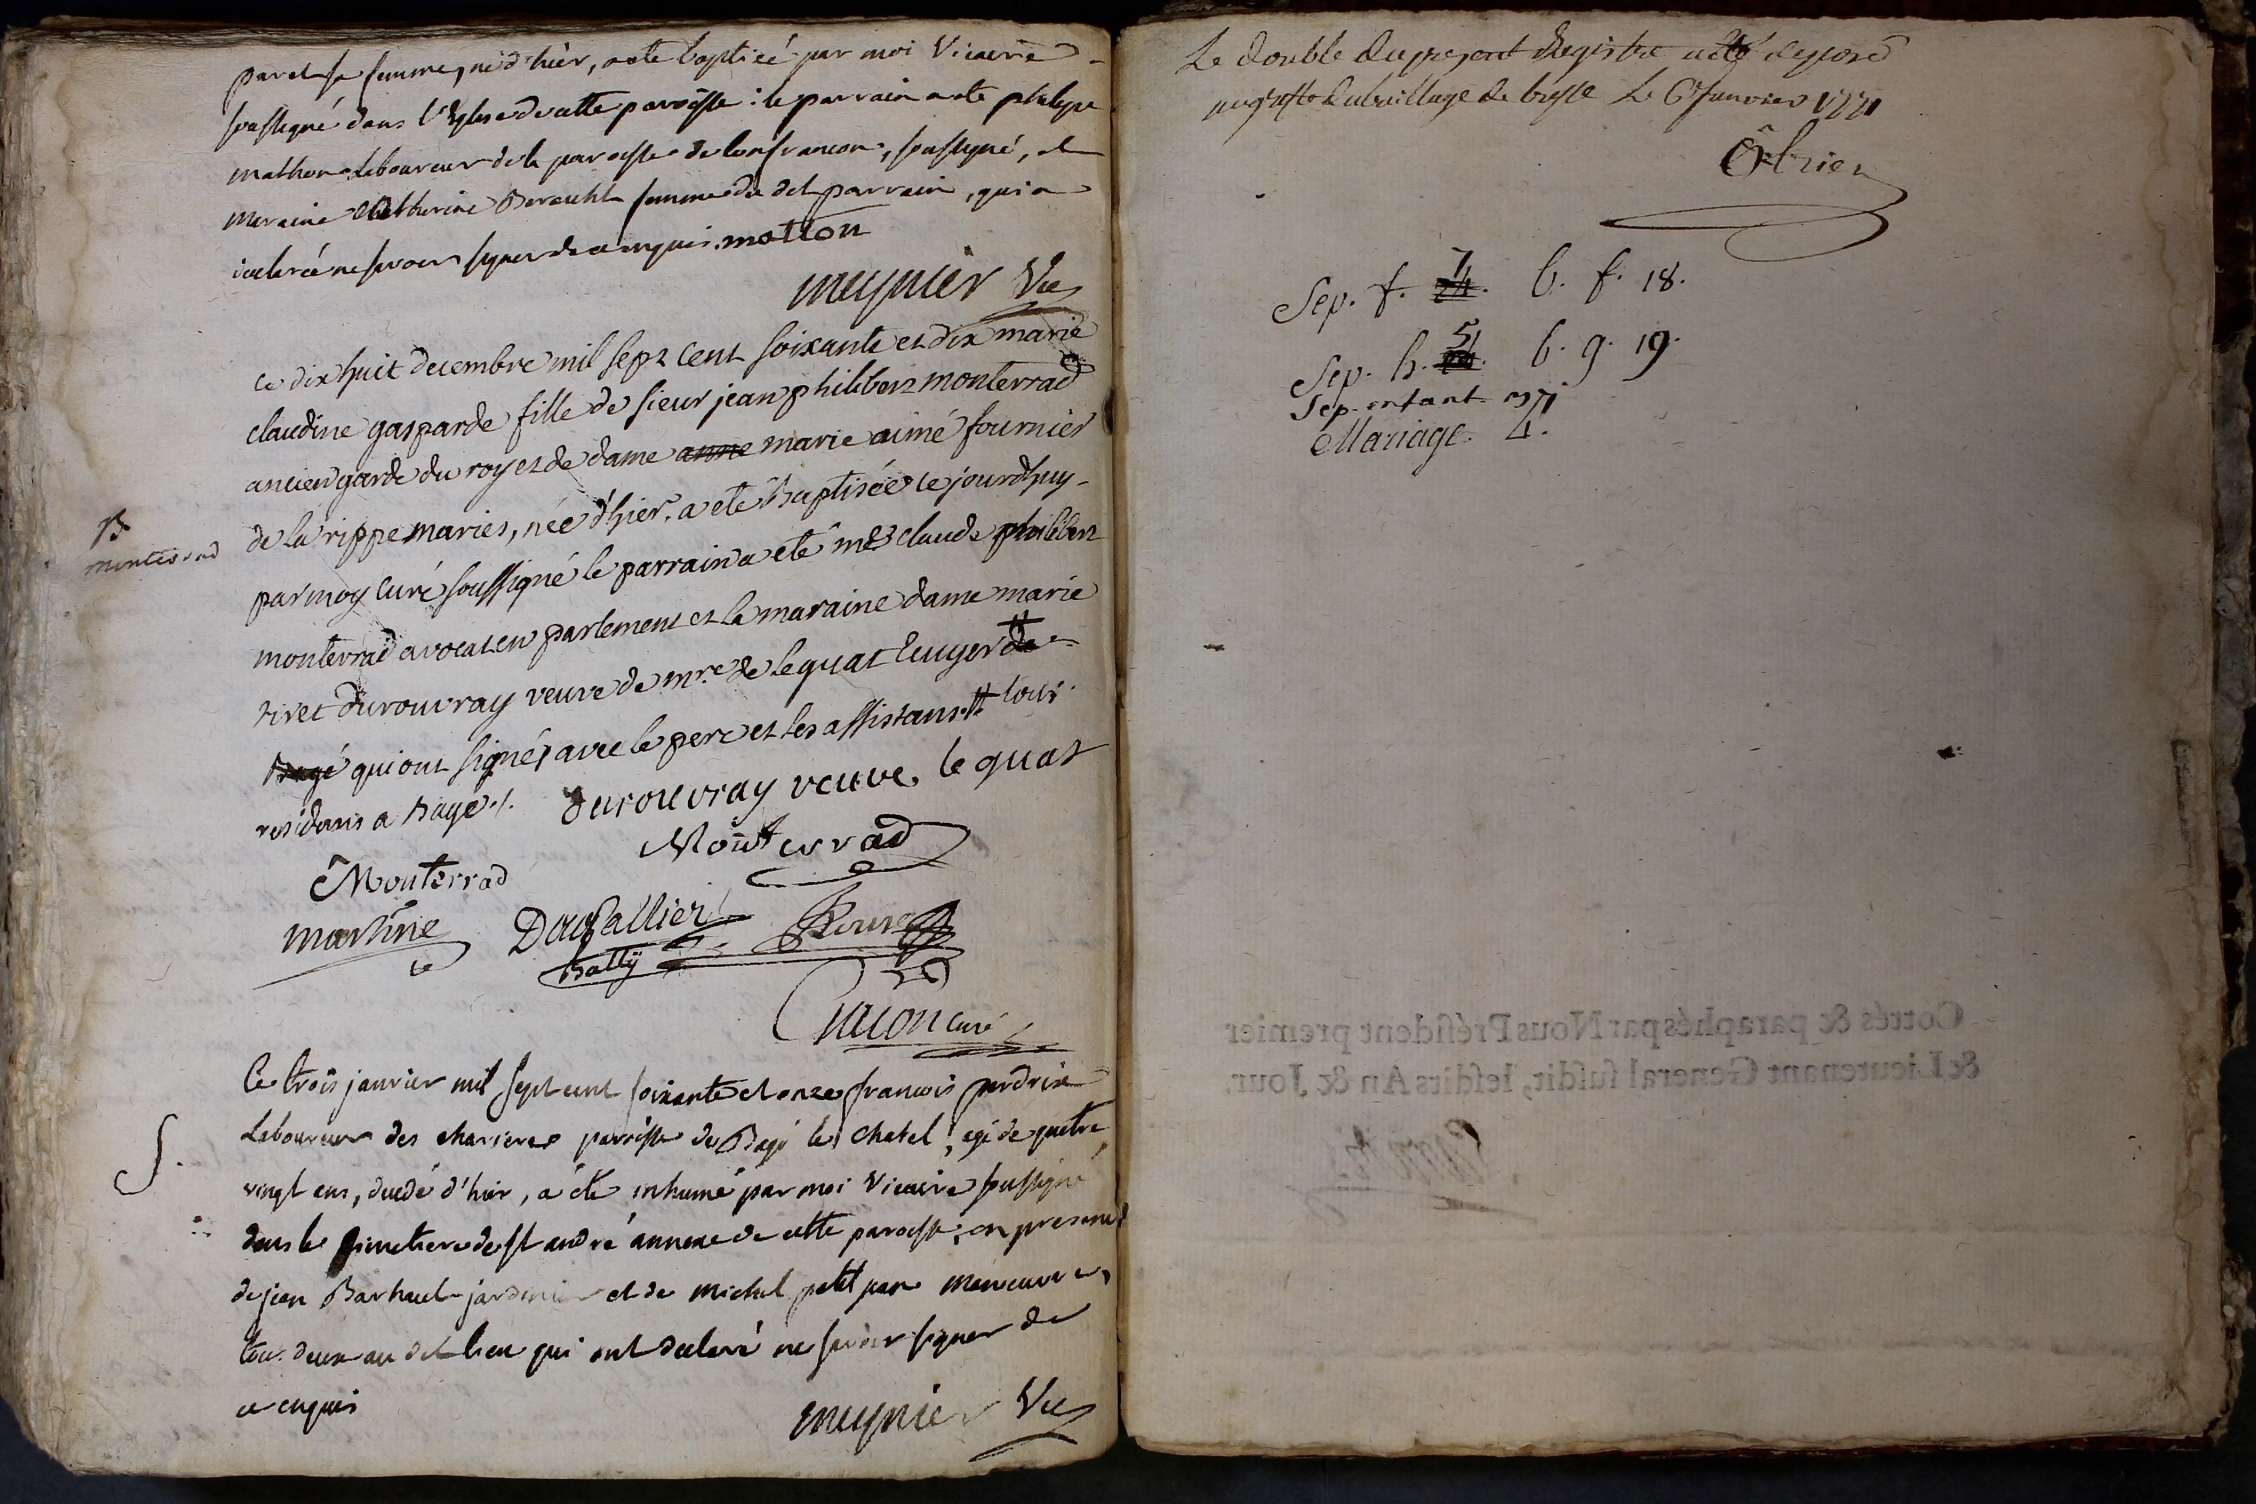 paret sa femme, né d'hièr, a ete baptisé par moi Vicaire
soussigné dans l'Eglise de cette paroisse : le parrain a ete philippe
mathon Laboureur de la paroisse de Confrancon, soussigné, et
maraine Catherine femme du dit parrain, qui a
declaré ne savoir signer de ce enquis. matton
meynier Vic
ce dix huit decembre mil sept cent soixante et dix marie
claudine gasparde fille de sieur jean philibert monterrad
ancien garde du roy et de dame anne marie aimé fournier
de la rippe maries, née d'hier, a eté Baptisée ce jourdhuy
B
monterrad
par moy curé soussigné le parrain a eté mre claude philibert
monterrad avocat en parlement et la maraine dame marie
rivet durouvray veuve de mre de lequat Ecuyer de
Bagé qui ont signés avec le pere et les assistans # tous
residans a Bagé ./. durouvray veuve le quat
Monterrad
Monterrad
martine Dagallier
Bally
curé
Ce trois janvier mil sept cent soixante et onze francois perdrix
Laboureur des charieres paroisse de Bagé le chatel, agé de quatre
S.
vingt ans, decedé d'hier, a été inhumé par moi Vicaire soussigné
dans le simetiere de st andré annexe de cette paroisse, en presence
de jean Barhaut jardinier et de michel petit jean maneuvre,
tous deux au dit lieu qui ont declaré ne savoir signer de
ce enquis
meynier Vic
Le double du present Registre a été deposé
au greffe du bailliage de bresse Le 6 Janvier 1771
Sep. f. 7 24. b. f. 18.
Sep. h. 5. b. g. 19.
Sep. enfant
Mariage. 4.
Cottés & paraphés par Nous Président premier
& Lieutenant General susdit, lesdits An & Jour.